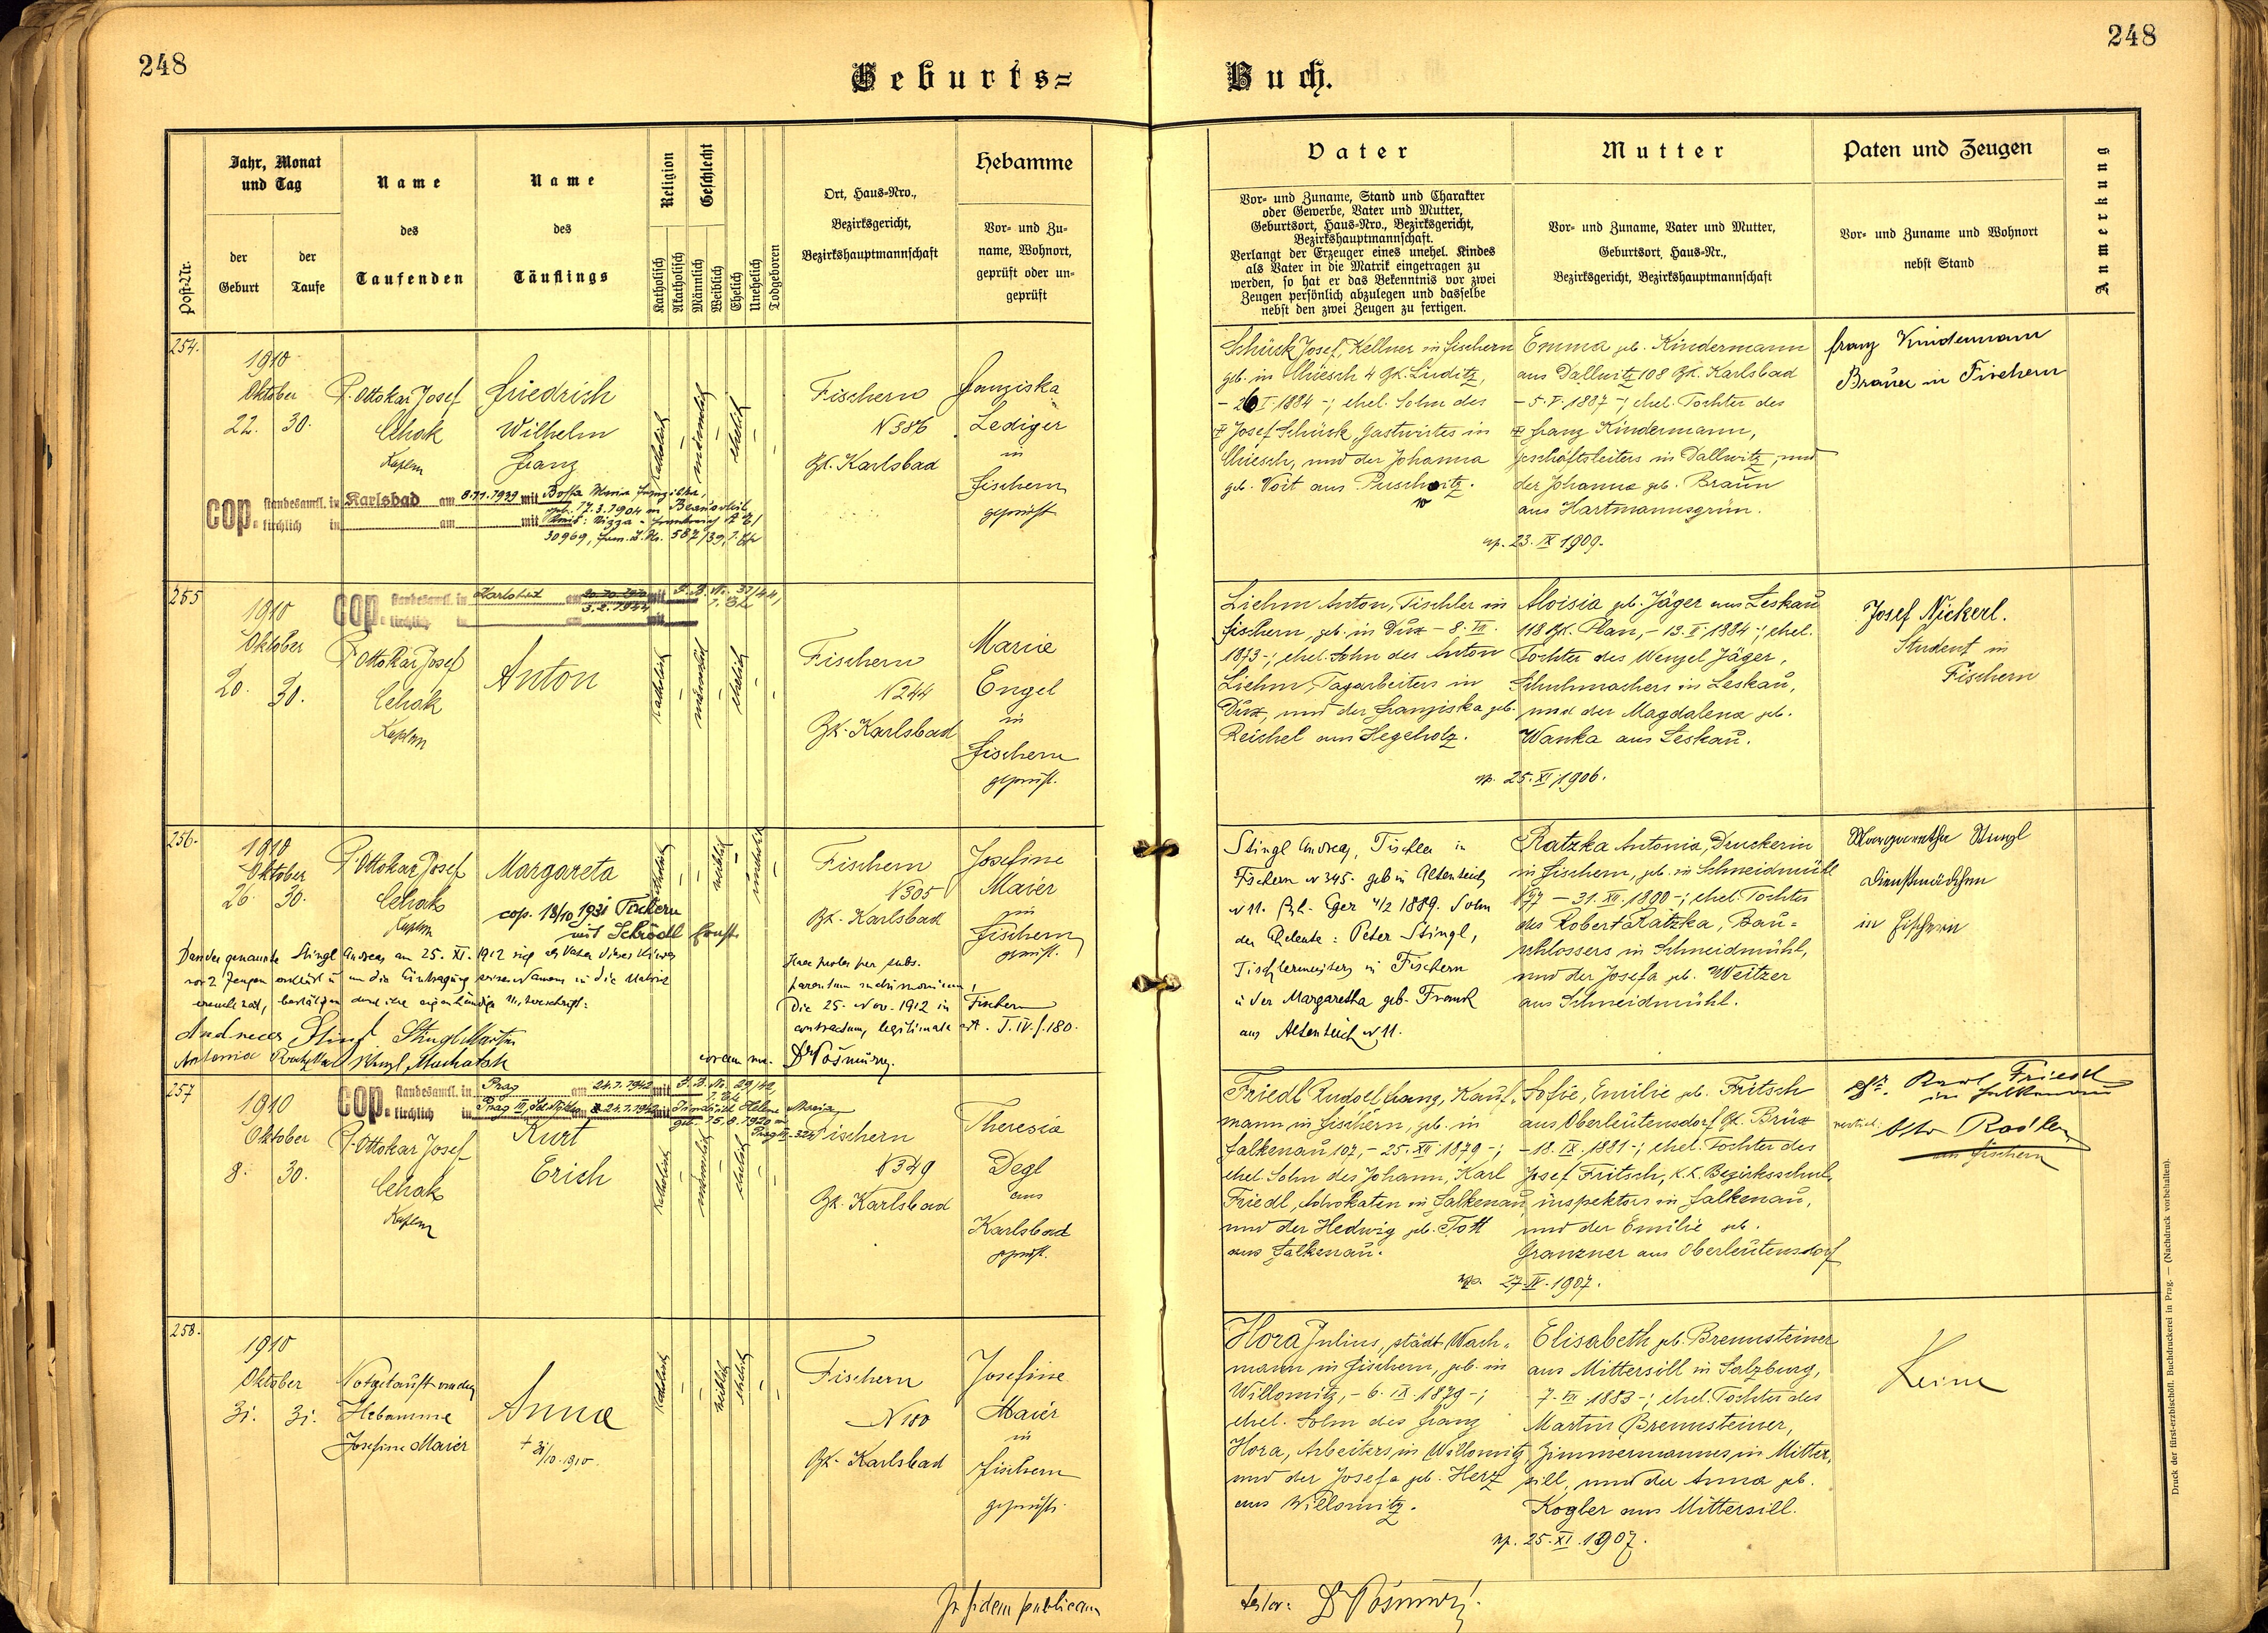 248
248
Geburts=
Buch.
Post-Nr.
Jahr, Monat
und Tag
der
Geburt
der
Taufe
Name
des
Taufenden
Name
des
Täuflings
Religion
Katholisch
Akatholisch
Geschlecht
Männlich
Weiblich
Ehelich
Unehelich
Todgeboren
Ort, Haus=Nro.,
Bezirksgericht,
Bezirkshauptmannschaft
Hebamme
Vor= und Zu=
name, Wohnort,
geprüft oder un=
geprüft
Vater
Vor= und Zuname, Stand und Charakter
oder Gewerbe, Vater und Mutter,
Geburtsort, Haus=Nro., Bezirksgericht,
Bezirkshauptmannschaft.
Verlangt der Erzeuger eines unehel. Kindes
als Vater in die Matrik eingetragen zu
werden, so hat er das Bekenntnis vor zwei
Zeugen persönlich abzulegen und dasselbe
nebst den zwei Zeugen zu fertigen.
Mutter
Vor= und Zuname, Vater und Mutter,
Geburtsort, Haus=Nr.,
Bezirksgericht, Bezirkshauptmannschaft
Paten und Zeugen
Vor= und Zuname und Wohnort
nebst Stand
Anmerkung
254.
1910
Oktober
22. 30.
P. Ottokar Josef
Cehak
Kaplan
Friedrich
Wilhelm
Franz
katholisch
männlich
ehelich
Fischern
N 386
Bz. Karlsbad
Franziska
Lediger
in
Fischern
geprüft
cop. standesamtl. in Karlsbad am 8.11.1939 mit
kirchlich in am mit
geb. 17.3.1904 in
Schück Josef, Kellner in Fischern
geb. in Chiesch 4 Bz. Luditz,
- 26 I 1884 -; ehel. Sohn des
Josef Schück, Gastwirtes in
Chiesch, und der Johanna
geb. Voit aus Puschwitz.
Emma geb. Kindermann
aus Dallwitz 108 Bz. Karlsbad
- 5. V. 1887 -; ehel. Tochter des
Franz Kindermann,
Geschäftsleiters in Dallwitz, und
der Johanna geb. Braun
aus Hartmannsgrün.
cop. 23. IX 1909.
Franz Kindermann
Brauer in Fischern
255
1910
Oktober
20. 30.
cop. standesamtl. in Karlsbad am 3.2.1944 mit F. B. Nr. 37/44,
kirchlich in am mit
P. Ottokar Josef
Cehak
Kaplan
Anton
katholisch
männlich
ehelich
Fischern
N 244
Bz. Karlsbad
Marie
Engel
in
Fischern
geprüft.
Liehm Anton, Tischler in
Fischern, geb. in Dux - 8. VII.
1873 -; ehel. Sohn des Anton
Liehm, Tagarbeiters in
Dux, und der Franziska geb.
Reichel aus Hegeholz.
Aloisia geb. Jäger aus Leskau
118 Bz. Plan, - 13. II 1884 -; ehel.
Tochter des Wenzel Jäger,
Schuhmachers in Leskau,
und der Magdalena geb.
Wanka aus Leskau.
cop. 25. XI 1906.
Josef Nickerl.
Student in
Fischern
256.
1910
Oktober
26. 30.
P. Ottokar Josef
Cehak
Kaplan
Margareta
cop. 18/10 1931 Fischern
mit Schrödl Ernst
katholisch
weiblich
unehelich
Fischern
N 305
Bz. Karlsbad
Josefine
Maier
in
Fischern
geprüft.
Stingl Andreas am 25. XI. 1912 sich als Vater dieses Kindes
vor 2 Zeugen erklärt u. um die Eintragung seines Namens in die Matrik
ersucht hat, bestätigen durch ihre eigenhändige Unterschrift:
Andreas Stingl Stingl Martin
Antonia Ratzka
Haec proles per subs.
parentum matrimonium,
Die 25. Nov. 1912 in Fischern
contractum, legitimata est. T. IV. f. 180.
coram me. Dr Pösmürz.
Stingl Andreas, Tischler in
Fischern N 345. geb in Altenteich
N 11. Bz. Eger 4/2 1889. Sohn
der Eheleute: Peter Stingl,
Tischlermeisters in Fischern
u der Margaretha geb. Frank
aus Altenteich N 11.
Ratzka Antonia, Druckerin
in Fischern, geb. in Schneidmühl
N 77 - 31. XII. 1890 -; ehel. Tochter
des Robert Ratzka, Bau=
schlossers in Schneidmühl,
und der Josefa geb. Weitzer
aus Schneidmühl.
Margaretha Stingl
Dienstmädchen
in Fischern
257
1910
Oktober
8. 30.
cop. standesamtl. in Prag am 24.7.1942 mit F. B. Nr. 29/42,
kirchlich in Prag III, am 24.7.1942 mit Helene Maria
P. Ottokar Josef
Cehak
Kaplan
Kurt
Erich
katholisch
männlich
ehelich
Fischern
N 349
Bz. Karlsbad
Theresia
Degl
aus
Karlsbad
geprüft.
Friedl Rudolf Franz, Kauf=
mann in Fischern, geb. in
Falkenau 107, - 25. XII 1879 -;
ehel. Sohn des Johann, Karl
Friedl, Advokaten in Falkenau
und der Hedwig geb. Tott
aus Falkenau.
Sofie, Emilie geb. Fritsch
aus Oberleutensdorf Bz. Brüx
- 18. IX. 1881 -; ehel. Tochter des
Josef Fritsch, k.k. Bezirksschul=
inspektors in Falkenau,
und der Emilie geb.
Granzner aus Oberleutensdorf
cop. 27. IV. 1907.
Dr. Karl Friedl
in Falkenau
Otto Radler
in Fischern
258.
1910
Oktober
31. 31.
Notgetauft von der
Hebamme
Josefine Maier
Anna
+ 31/10. 1910.
katholisch
weiblich
ehelich
Fischern
N 180
Bz. Karlsbad
Josefine
Maier
in
Fischern
geprüft.
Hora Julius, städt. Wach=
mann in Fischern, geb. in
Willomitz, - 6. IX. 1879 -;
ehel. Sohn des Franz
Hora, Arbeiters in Willomitz
und der Josefa geb. Herz
aus Willomitz.
Elisabeth geb. Brennsteiner
aus Mittersill in Salzburg,
7. VII 1883 -; ehel. Tochter des
Martin Brennsteiner,
Zimmermannes in Mitter=
sill, und der Anna geb.
Kogler aus Mittersill.
cop. 25. XI. 1907.
Keine
In fidem publicam
testor: Dr Pösmürz
Druck der fürst-erzbischöfl. Buchdruckerei in Prag. — (Nachdruck vorbehalten).